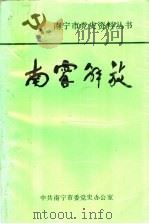 南宁市党史资料丛书
南宁解放
中共南宁市委党史办公室